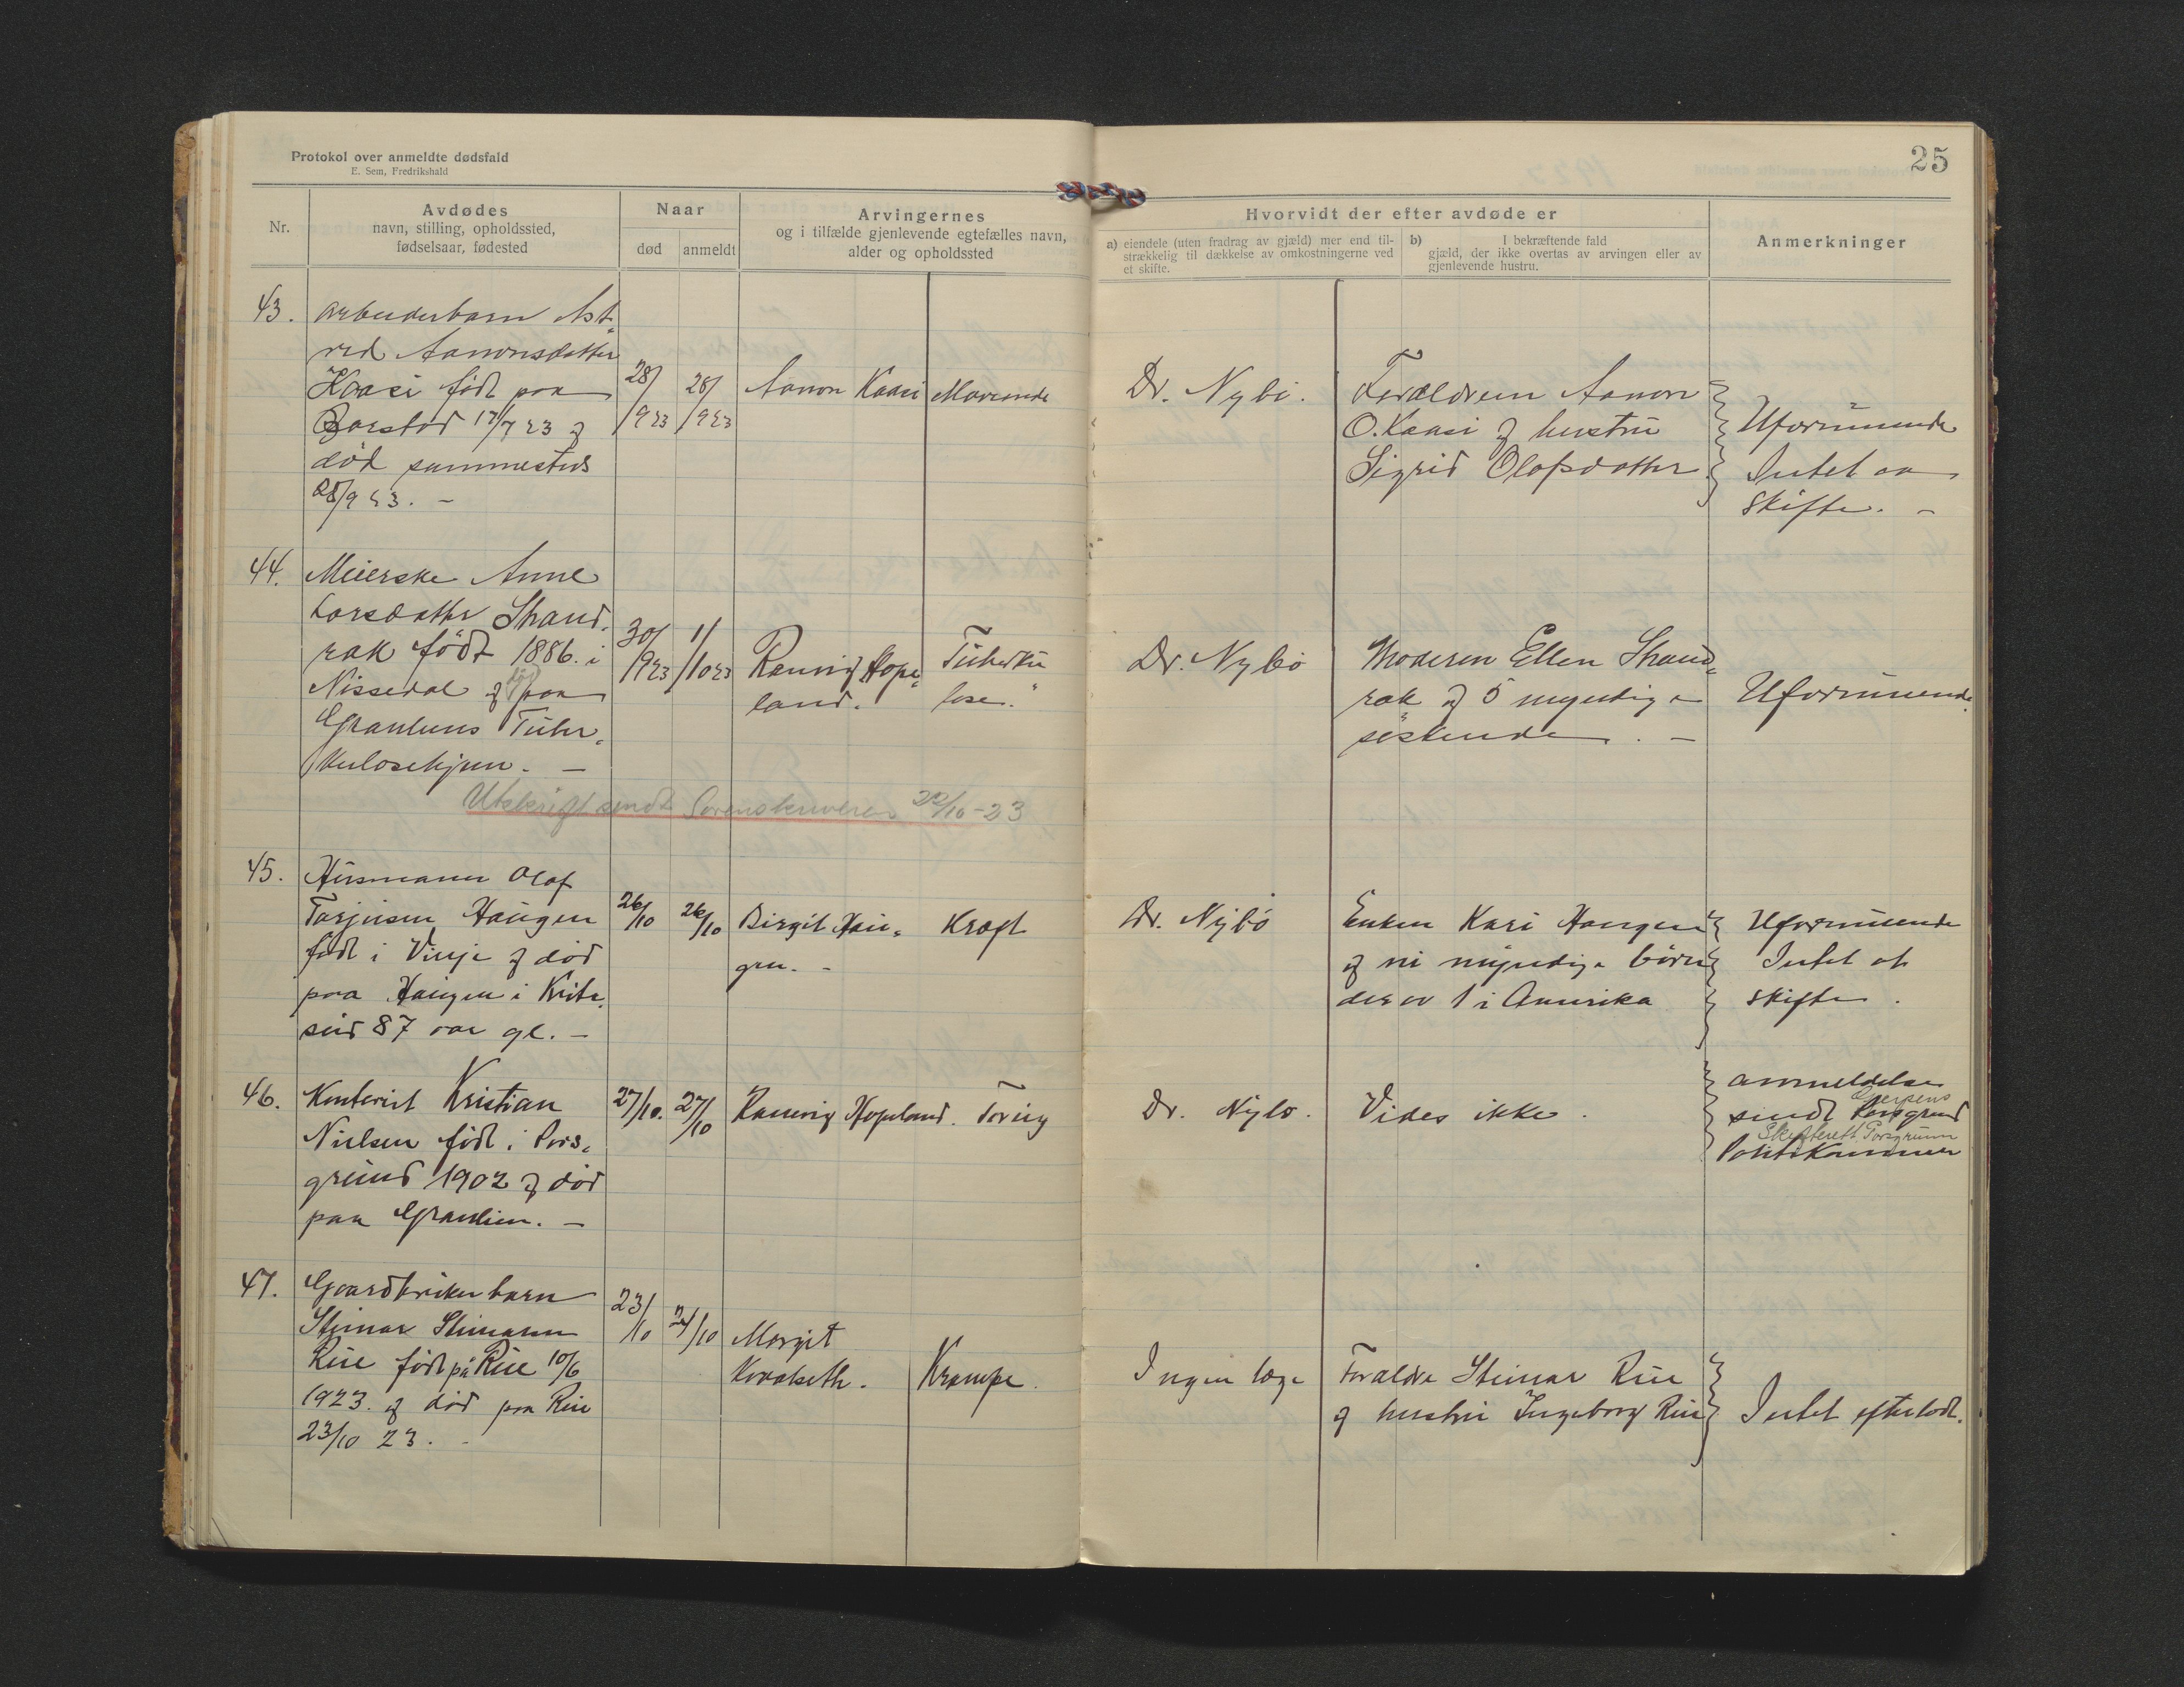 Protokol over anmeldte dødsfald
E. Sem, Fredrikshald
25
Nr.
Avdødes
navn, stilling, opholdssted,
fødselsaar, fødested
Naar
død
anmeldt
Arvingernes
og i tilfælde gjenlevende egtefælles navn,
alder og opholdssted
Hvorvidt der efter avdøde er
a) eiendele (uten fradrag av gjæld) mer end til-
strækkelig til dækkelse av omkostningerne ved
et skifte.
b) I bekræftende fald
gjæld, der ikke overtas av arvingen eller av
gjenlevende hustru.
Anmerkninger
43.
Arbeiderbarn Ast-
rid Aanonsdatter
Kaasi født paa
Borstad 17/7 23 og
død sammesteds
28/9 23. -
28/9 23
28/9 23
Aanon Kaasi
Dr. Nybö.
Forældrene Aanon
O. Kaasi og hustru
Sigrid Olafsdatter
Uformuende
Intet aa
skifte. -
44.
Meierske Anne
Larsdatter Strand-
rak født 1886. i
Nissedal og død paa
Granliens Tuber-
kulosehjem. -
30/9 23
1/10 23
Ranvig Hope-
land.
Tuberku-
lose.
Dr. Nybö
Moderen Ellen Strand-
rak og 5 myndige
søskende. -
Uformuende.
Utskrift sendt Sorenskriveren 22/10-23
45.
Husmann Olaf
Tarjeisen Haugen
født i Vinje og død
paa Haugen i Kvite-
seid 87 aar gl. -
26/10
26/10
Birgit Hau-
gen. -
Kræft
Dr. Nybö
Enken Kari Haugen
og ni myndige börn
derav 1 i Amerika
Uformuende
Intet at
skifte.
46.
Kontorist Kristian
Nielsen født i Pors-
grund 1902 og død
paa Granlien. -
27/10.
27/10
Ranvig Hopeland.
Tæring
Dr. Nybö.
Vides ikke.
Anmeldelse
Gjerpens
sendt Porsgrund
Skifterett Porsgrunn
Politikammer
47.
Gaardbrukerbarn
Steinar Steinarsen
Rue født på Rue 10/6
1923. og död paa Rue
23/10 23. -
23/10
24/10
Margit
Kvaalseth.
Krampe.
Ingen læge
Forældre Steinar Rue
og hustru Ingeborg Rue
Intet efterladt.